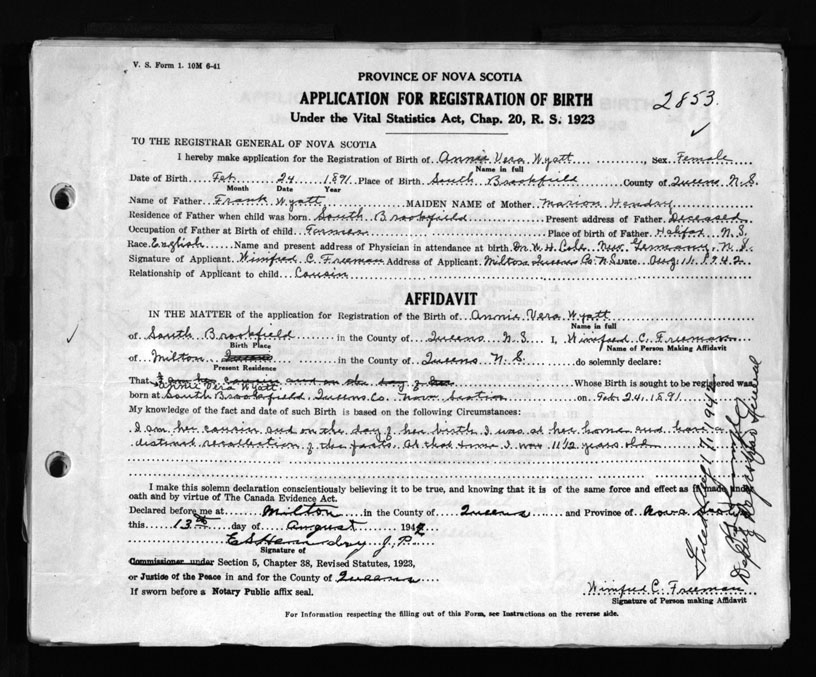 V. S. Form 1. 10M 6-41
PROVINCE OF NOVA SCOTIA
APPLICATION FOR REGISTRATION OF BIRTH
2853
Under the Vital Statistics Act, Chap. 20, R. S. 1923
✓
TO THE REGISTRAR GENERAL OF NOVA SCOTIA
I hereby make application for the Registration of Birth of Annie Vera Wyatt, Sex Female
Name in full
Date of Birth Feb 24 1891 Place of Birth South Brookfield County of Queens N.S.
Month Date Year
Name of Father Frank Wyatt MAIDEN NAME of Mother Marion Hendry
Residence of Father when child was born South Brookfield Present address of Father Deceased
Occupation of Father at Birth of child Farmer Place of birth of Father Halifax N.S.
Race English Name and present address of Physician in attendance at birth Dr. Cole, New Germany, N.S.
Signature of Applicant Winifred C. Freeman Address of Applicant Milton Queens Co. N.S. Date Aug. 1942
Relationship of Applicant to child Cousin
AFFIDAVIT
IN THE MATTER of the application for Registration of the Birth of Annie Vera Wyatt
Name in full
of South Brookfield in the County of Queens N.S. I, Winifred C. Freeman
Birth Place Name of Person Making Affidavit
✓
of Milton Queens in the County of Queens N.S. do solemnly declare:
Present Residence
That I am her cousin and on the day of
Annie Vera Wyatt Whose Birth is sought to be registered was
born at South Brookfield Queens Co. Nova Scotia on Feb 24, 1891
My knowledge of the fact and date of such Birth is based on the following Circumstances:
I am her cousin and on the day of her birth I was at her home and have a
distinct recollection of the facts. At that time I was 11 1/2 years old.
I make this solemn declaration conscientiously believing it to be true, and knowing that it is of the same force and effect as if made under
oath and by virtue of The Canada Evidence Act.
Declared before me at Milton in the County of Queens and Province of Nova Scotia
this 13th day of August 1942
Hendry J.P.
Signature of
Commissioner under Section 5, Chapter 38, Revised Statutes, 1923,
or Justice of the Peace in and for the County of Queens
If sworn before a Notary Public affix seal.
Winifred C. Freeman
Signature of Person making Affidavit
For Information respecting the filling out of this Form, see Instructions on the reverse side.
Filed Aug 17, 1942
Deputy Registrar General